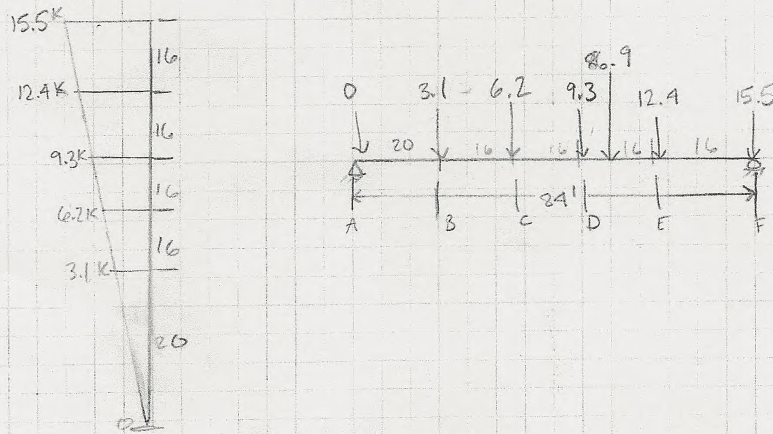 15.5K
16
12.4K
16
9.3K
16
6.2K
16
3.1K
20
0 3.1 6.2 9.3 .9 12.4 15.5
20 16 16 16 16
84'
A B C D E F